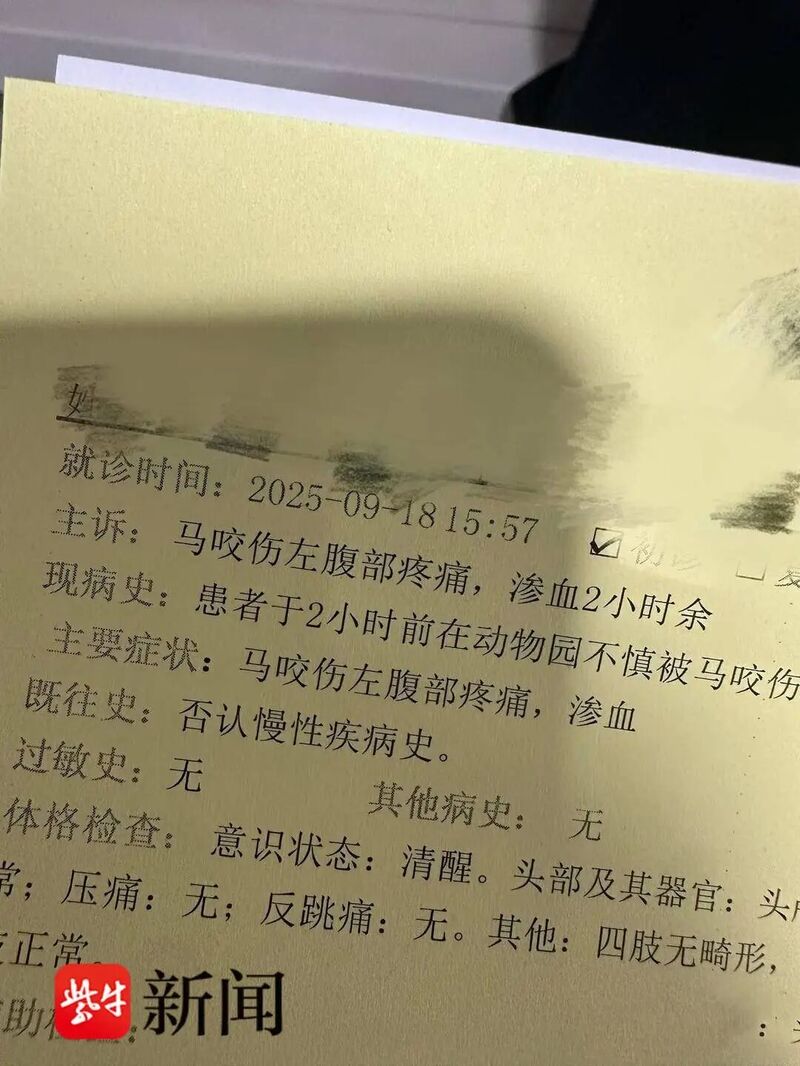 就诊时间：2025-09-18 15:57 初诊
主诉：马咬伤左腹部疼痛，渗血2小时余
现病史：患者于2小时前在动物园不慎被马咬伤
主要症状：马咬伤左腹部疼痛，渗血
既往史：否认慢性疾病史。
过敏史：无 其他病史：无
体格检查：意识状态：清醒。头部及其器官：头
常；压痛：无；反跳痛：无。其他：四肢无畸形，
正常。
紫牛新闻